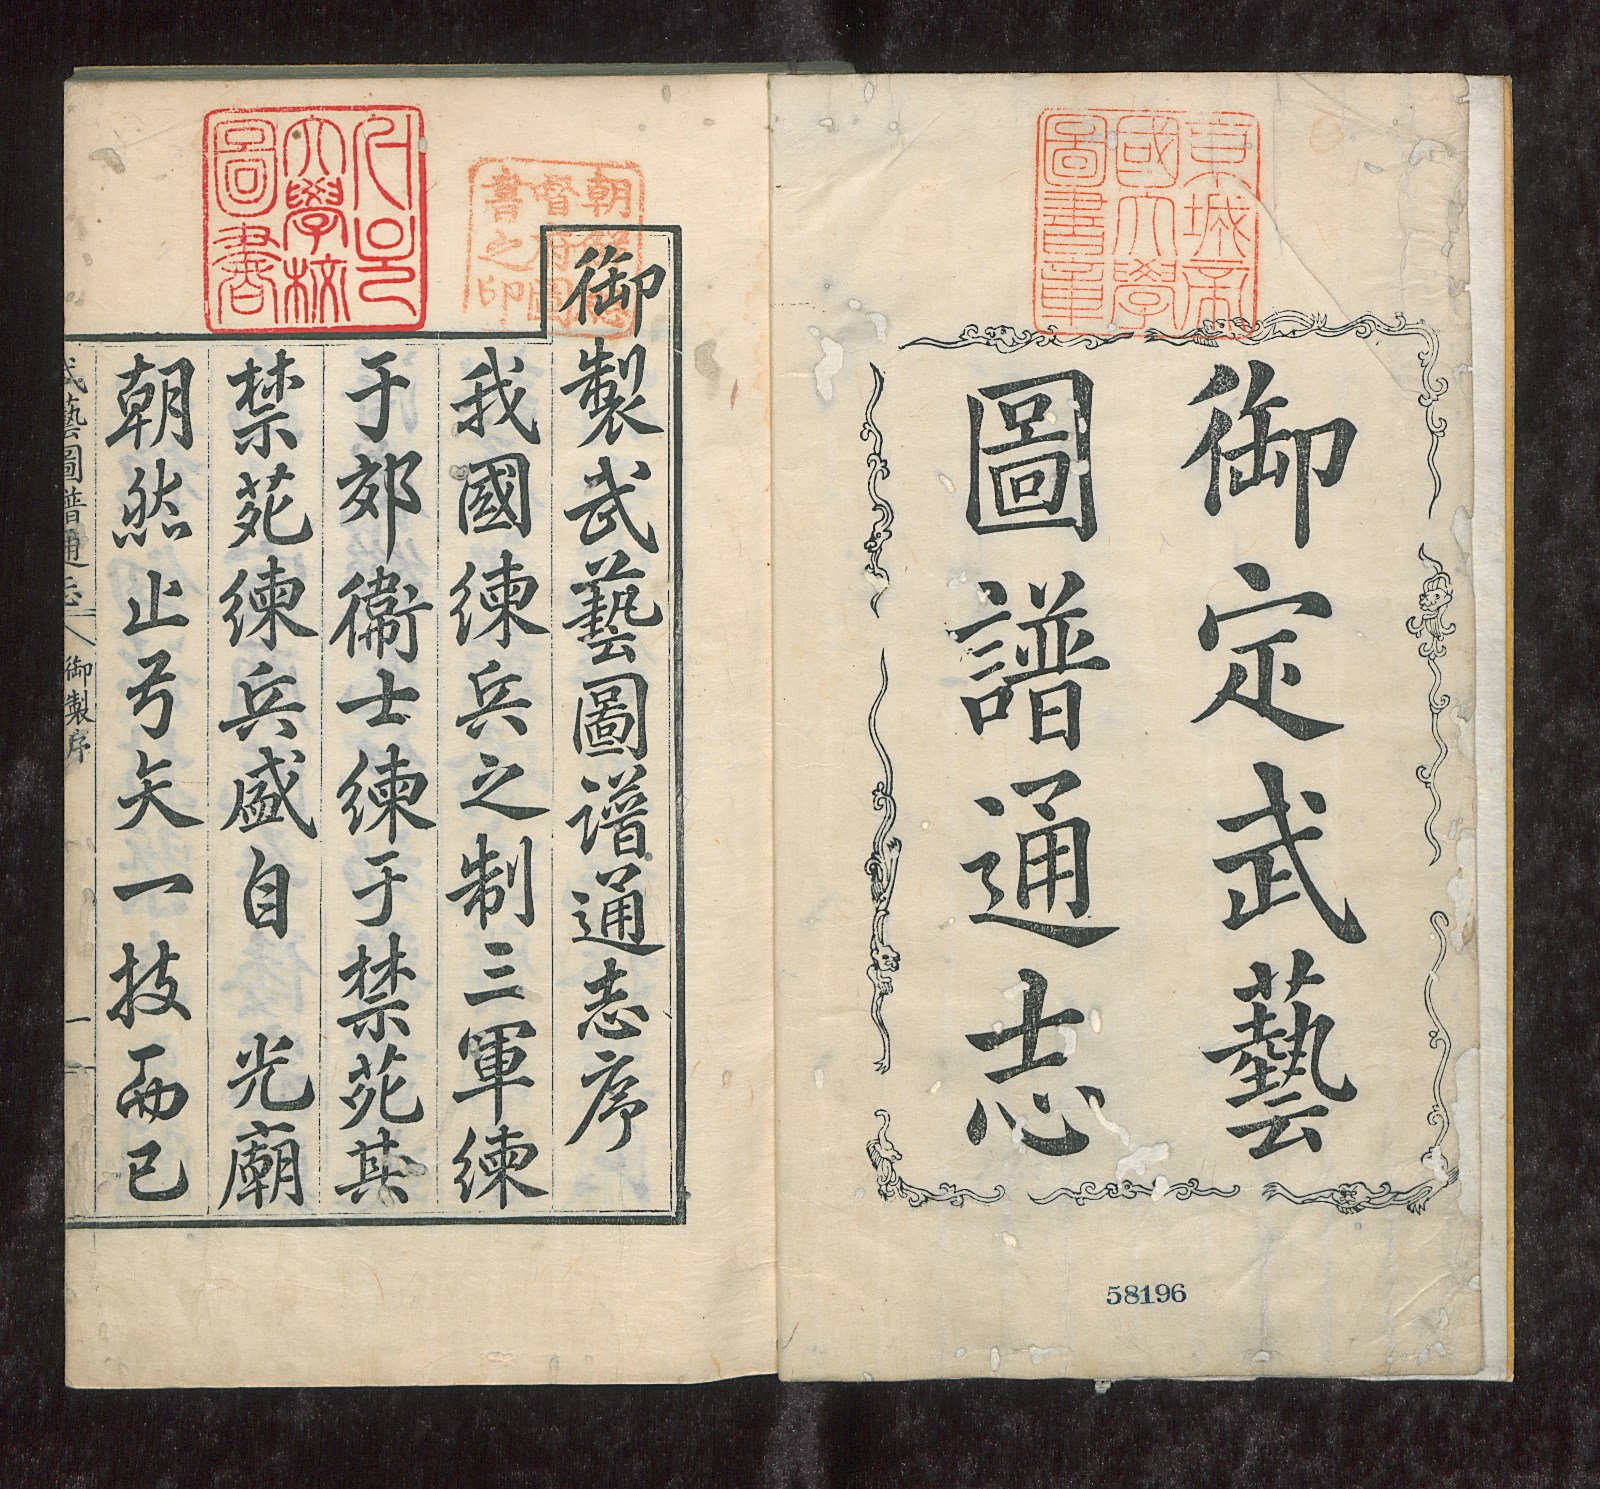 御定武藝
圖譜通志
東城帝
國大學
圖書章
58196
朝鮮總
督府圖
書之印
서울
大學校
圖書
御製武藝圖譜通志序
我國練兵之制三軍練
于郊衞士練于禁苑其
禁苑練兵盛自 光廟
朝然止弓矢一技而已
武藝圖譜通志 御製序 一